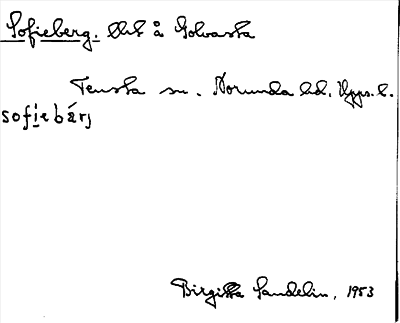 Sofieberg. lht å Golvasta
Tensta sn. Norunda hd. Upps. l.
sofiebárj
Birgitta Sandelin, 1953